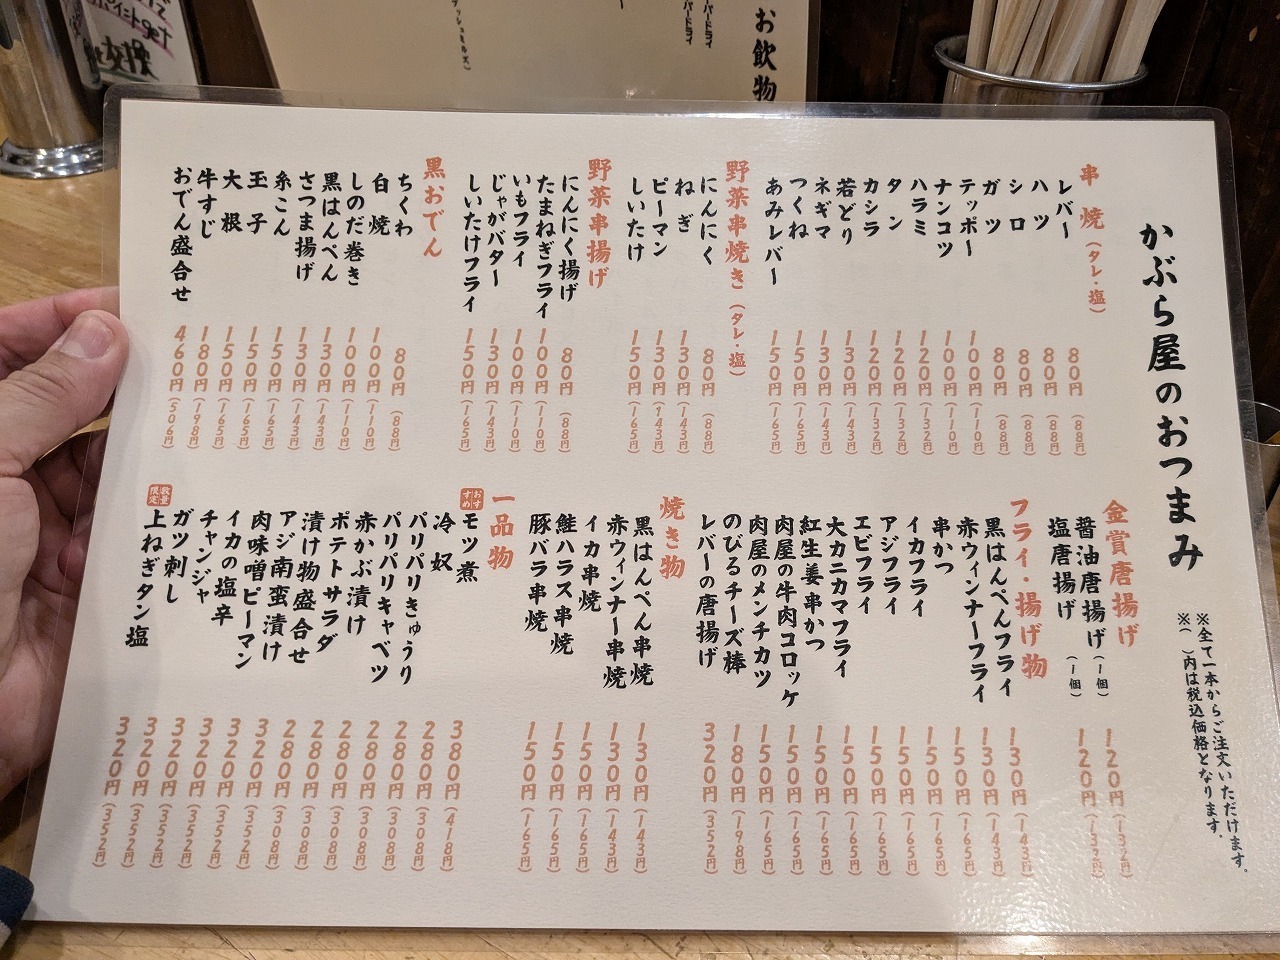 お飲物
かぶら屋のおつまみ
※全て一本からご注文いただけます。
※（ ）内は税込価格となります。
串焼（タレ・塩）
レバー 80円（88円）
ハツ 80円（88円）
シロ 80円（88円）
ガツ 80円（88円）
テッポー 100円（110円）
ナンコツ 100円（110円）
ハラミ 120円（132円）
タン 120円（132円）
カシラ 120円（132円）
若どり 130円（143円）
ネギマ 130円（143円）
つくね 150円（165円）
あみレバー 150円（165円）
野菜串焼き（タレ・塩）
にんにく 80円（88円）
ねぎ 130円（143円）
ピーマン 130円（143円）
しいたけ 150円（165円）
野菜串揚げ
にんにく揚げ 80円（88円）
たまねぎフライ 100円（110円）
いもフライ 100円（110円）
じゃがバター 130円（143円）
しいたけフライ 150円（165円）
黒おでん
ちくわ 80円（88円）
白焼 100円（110円）
しのだ巻き 100円（110円）
黒はんぺん 130円（143円）
さつま揚げ 130円（143円）
糸こん 150円（165円）
玉子 150円（165円）
大根 150円（165円）
牛すじ 180円（198円）
おでん盛合せ 460円（506円）
金賞唐揚げ
醤油唐揚げ（1個） 120円（132円）
塩唐揚げ（1個） 120円（132円）
フライ・揚げ物
黒はんぺんフライ 130円（143円）
赤ウィンナーフライ 130円（143円）
串かつ 150円（165円）
イカフライ 150円（165円）
アジフライ 150円（165円）
エビフライ 150円（165円）
大カニカマフライ 150円（165円）
紅生姜串かつ 150円（165円）
肉屋の牛肉コロッケ 150円（165円）
肉屋のメンチカツ 150円（165円）
のびるチーズ棒 180円（198円）
レバーの唐揚げ 320円（352円）
焼き物
黒はんぺん串焼 130円（143円）
赤ウィンナー串焼 130円（143円）
イカ串焼 150円（165円）
鮭ハラス串焼 150円（165円）
豚バラ串焼 150円（165円）
一品物
おすすめ モツ煮 380円（418円）
冷奴 280円（308円）
パリパリきゅうり 280円（308円）
パリパリキャベツ 280円（308円）
赤かぶ漬け 280円（308円）
ポテトサラダ 280円（308円）
漬け物盛合せ 280円（308円）
アジ南蛮漬け 320円（352円）
肉味噌ピーマン 320円（352円）
イカの塩辛 320円（352円）
チャンジャ 320円（352円）
ガツ刺し 320円（352円）
数量限定 上ねぎタン塩 320円（352円）